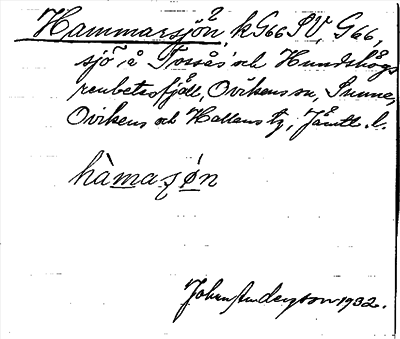 Hammarsjön kG66 SV, G66,
sjö i Tossås och Hundshögs
renbetesfjäll, Ovikens sn, Sunne,
Ovikens och Hallens tg, Jämtl. l.
hàmaʂøn
Johan Anderzon 1932.